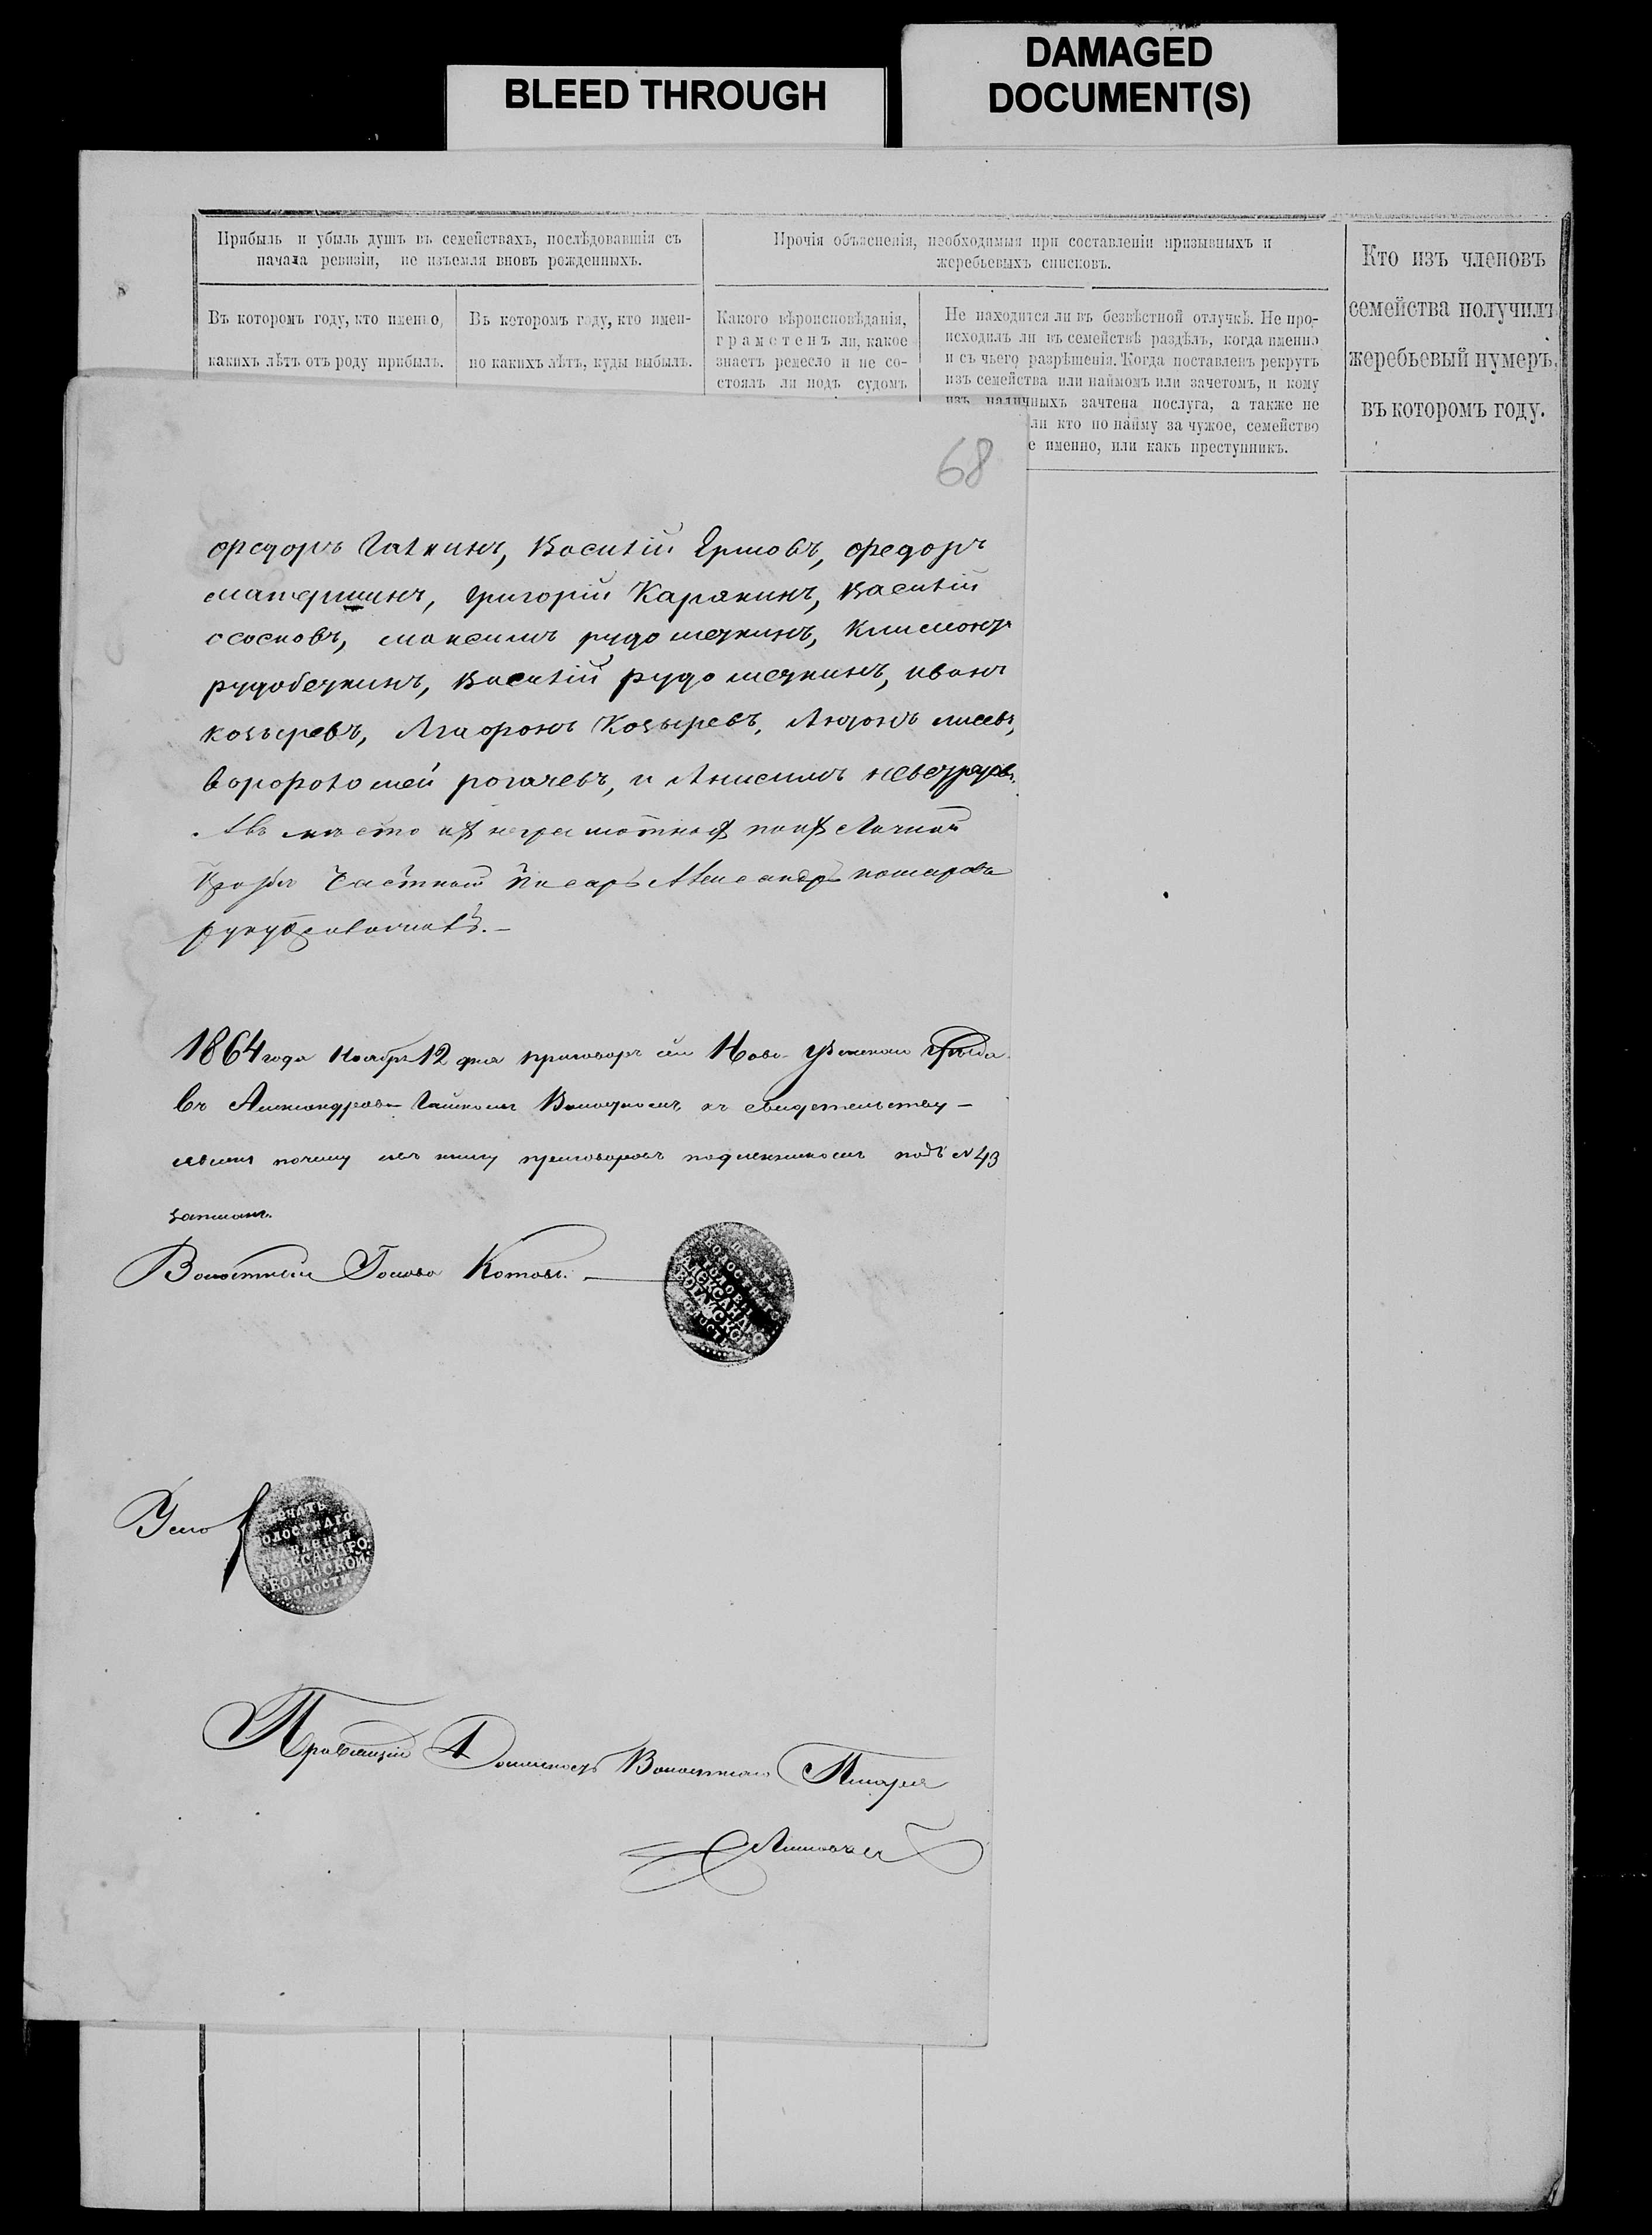 BLEED THROUGH
DAMAGED
DOCUMENT(S)
Прибыль и убыль душъ въ семействахъ, послѣдовавшія съ
начала ревизіи, не изъемля вновь рожденныхъ.
Въ которомъ году, кто именно,
какихъ лѣтъ отъ роду прибылъ.
Въ которомъ году, кто имен-
но какихъ лѣтъ, куды выбылъ.
Прочія объясненія, необходимыя при составленіи призывныхъ и
жеребьевыхъ списковъ.
Какого вѣроисповѣданія,
грамотенъ ли, какое
знаетъ ремесло и не со-
стоялъ ли подъ судомъ
Не находится ли въ безвѣстной отлучкѣ. Не про-
исходилъ ли въ семействѣ раздѣлъ, когда именно
и съ чьего разрѣшенія. Когда поставленъ рекрутъ
изъ семейства или наймомъ или зачетомъ, и кому
изъ наличныхъ зачтена послуга, а также не
ли кто по найму за чужое, семейство
е именно, или какъ преступникъ.
Кто изъ членовъ
семейства получилъ
жеребьевый нумеръ,
въ которомъ году.
68
федоръ Галкинъ, Василій Ершовъ, федоръ
матершинъ, григорій Карякинъ, Василій
сосновъ, максимъ рудометкинъ, Климонъ
рудобечкинъ, Василій рудометкинъ, иванъ
козыревъ, Агафонъ Козыревъ, Антонъ лисевъ,
ворфоломей рогачевъ, и Анисимъ
А въ мѣсто ихъ неграмотныхъ поихъ Личной
Прозбѣ Частной Писарь Александръ
1864 года Ноября 12 дня приговоръ сей Ново-Узенскаго уѣзда
въ Александрово-Гайскомъ Волостномъ къ свидетельству
явленъ почему въ книгу приговоровъ подлежащею подъ N 43
записанъ.
Волостный Голова Котовъ.
ПЕЧАТЬ
ВОЛОСТНАГО
ГОЛОВЫ
АЛЕКСАНДРО
ВОГАЙСКОЙ
ВОЛОСТИ
ПЕЧАТЬ
ВОЛОСТНАГО
ПРАВЛЕНІЯ
АЛЕКСАНДРО
ВОГАЙСКОЙ
ВОЛОСТИ
Правящій Должность Волостнаго Писаря